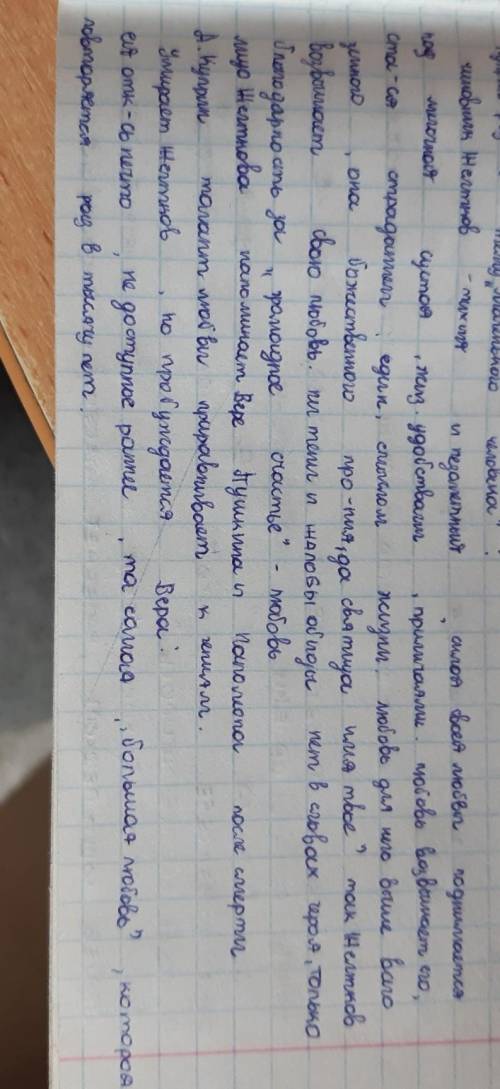 маленького человека.
чиновник Желтков - тихий и незаметный силой всей любви поднимается
над мелочной суетой, жиз. удобствами, приличаями. любовь возвышает его,
ста-ся страданием, един. смыслом жизни. любовь для него выше всего
земного, она божественного про-ния, да святица имя твое" так Желтков
возвышает свою любовь. ни тени и жалобы обиды нет в словах героя, только
благодарность за "громодное счастье" - любовь
лицо Желткова напоминает Вере Пушкина и Наполеона после смерти.
А. Куприн талант любви приравнивает к гениям.
умирает Желтков, но пробуждается Вера.
ей отк-сь нечто, не доступное раннее, та самая "большая любовь", которая
повторяется раз в тысячу лет.